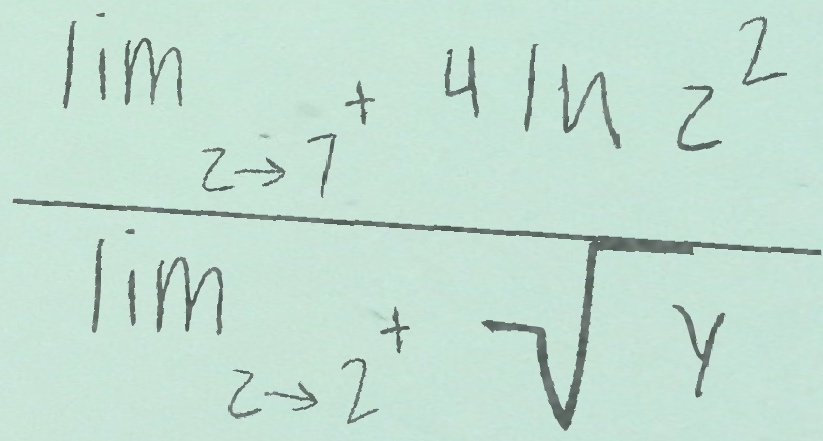 \frac{\lim_{z \to 7^+} 4 \ln z^2}{\lim_{z \to 2^+} \sqrt{y}}